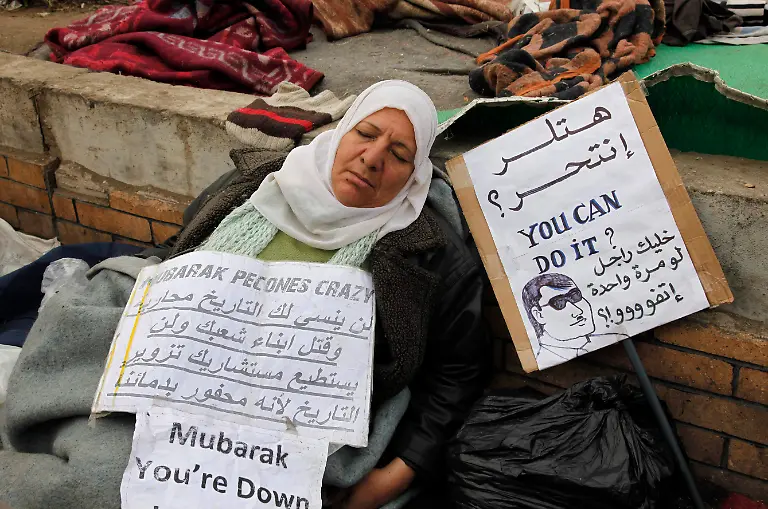 MUBARAK PECONES CRAZY
لن ينسي لك التاريخ محاربة
وقتل ابناء شعبك ولن
يستطيع مستشاريك تزوير
التاريخ لأنه محفور بدمائنا
Mubarak
You're Down
هتلر
إنتحر؟
YOU CAN
DO iT ?
خليك راجل
لو مرة واحدة
إتفوووو!؟